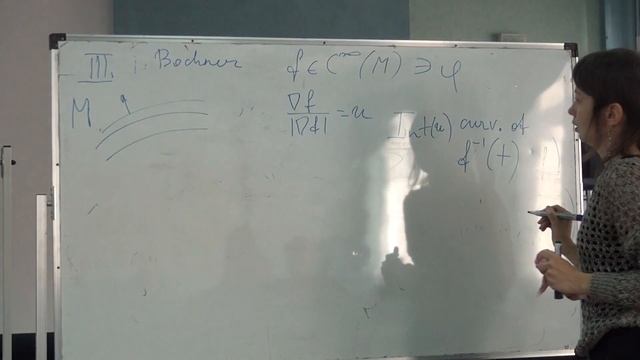 III. Bochner f ∈ C^∞(M) ∋ φ
M ∇f/|∇f| = u Int(u) curv. of
f⁻¹(t)